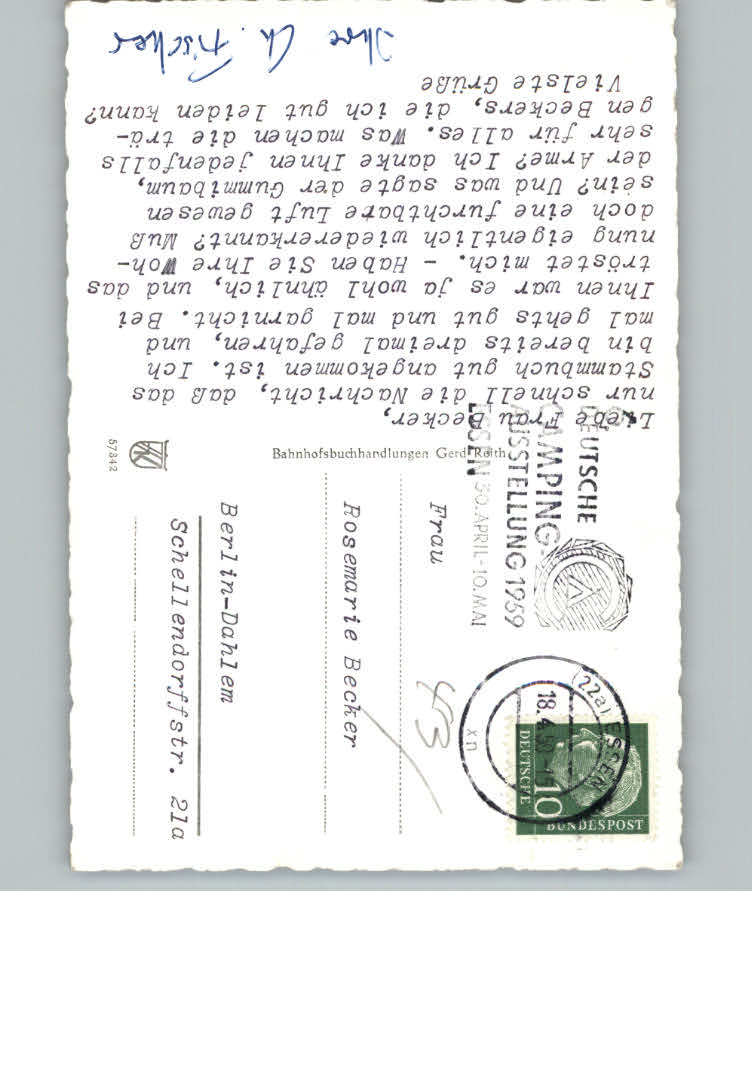 Liebe Frau Becker,
nur schnell die Nachricht, daß das
Stammbuch gut angekommen ist. Ich
bin bereits dreimal gefahren, und
mal gehts gut und mal garnicht. Bei
Ihnen war es ja wohl ähnlich, und das
tröstet mich. - Haben Sie Ihre Woh-
nung eigentlich wiedererkannt? Muß
doch eine furchtbare Luft gewesen
sein? Und was sagte der Gummibaum,
der Arme? Ich danke Ihnen jedenfalls
sehr für alles. Was machen die trä-
gen Beckers, die ich gut leiden kann?
Vielste Grüße
Ihre Ch. Fischer
57342
Bahnhofsbuchhandlungen Gerd Reith
DEUTSCHE
CAMPING-
AUSSTELLUNG 1959
ESSEN 30. APRIL - 10. MAI
(22a) ESSEN
18.4.59-15
xn
DEUTSCHE
BUNDESPOST
10
Frau
Rosemarie Becker
Berlin-Dahlem
Schellendorffstr. 21a